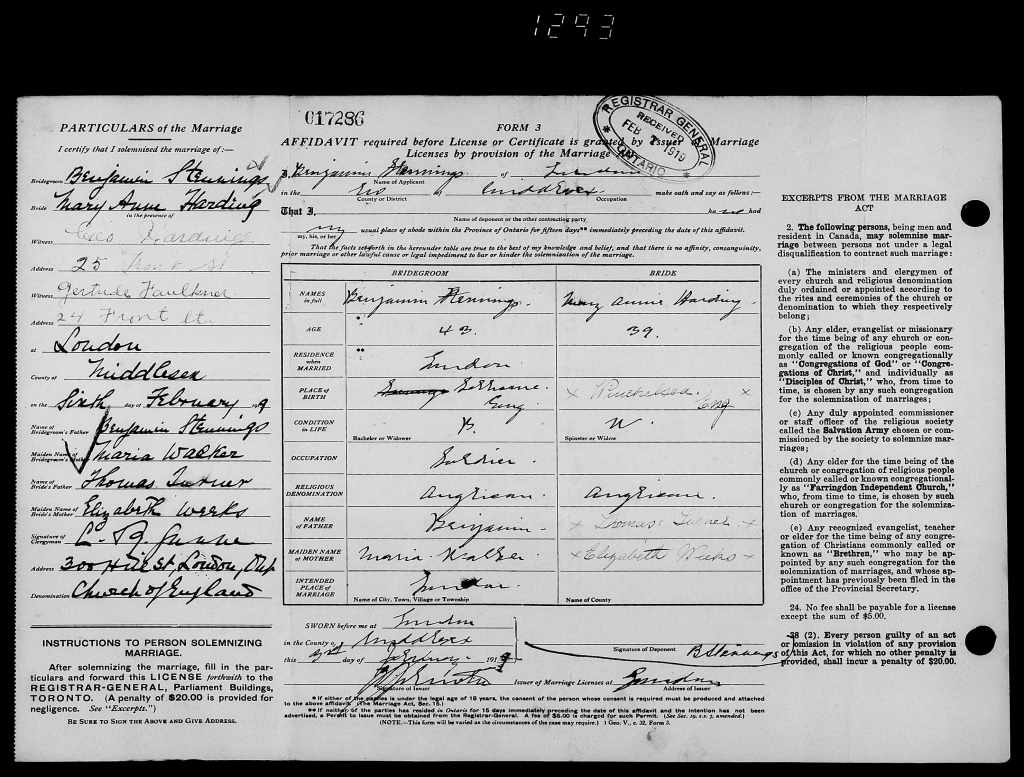 1293
PARTICULARS of the Marriage
I certify that I solemnized the marriage of:—
Bridegroom Benjamin Stennings
Bride Mary Ann Harding
in the presence of
Witness Geo
Address 25 Front St
Witness Gertrude Faulkner
Address 24 Front St.
at London
County of Middlesex
on the Sixth day of February 1919
Name of Bridegroom's Father Benjamin Stennings
Maiden Name of Bridegroom's Mother Maria Walker
Name of Bride's Father Thomas Turner
Maiden Name of Bride's Mother Elizabeth Weeks
Signature of Clergyman C. B.
Address 300 Hill St. London, Ont.
Denomination Church of England
INSTRUCTIONS TO PERSON SOLEMNIZING
MARRIAGE.
After solemnizing the marriage, fill in the par-
ticulars and forward this LICENSE forthwith to the
REGISTRAR-GENERAL, Parliament Buildings,
TORONTO. (A penalty of $20.00 is provided for
negligence. See "Excerpts.")
BE SURE TO SIGN THE ABOVE AND GIVE ADDRESS.
017286
FORM 3
REGISTRAR GENERAL
RECEIVED
FEB 7 1919
ONTARIO
AFFIDAVIT required before License or Certificate is granted by Issuer Marriage
Licenses by provision of the Marriage
I, Benjamin Stennings of London
Name of Applicant
in the Co of Middlesex make oath and say as follows:—
County or District Occupation
That I, ha not had
Name of deponent or the other contracting party
my usual place of abode within the Province of Ontario for fifteen days** immediately preceding the date of this affidavit.
my, his, or her
That the facts set forth in the hereunder table are true to the best of my knowledge and belief, and that there is no affinity, consanguinity,
prior marriage or other lawful cause or legal impediment to bar or hinder the solemnization of the marriage.
BRIDEGROOM BRIDE
NAMES in full Benjamin Stennings. Mary Annie Harding.
AGE 43. 39.
RESIDENCE when MARRIED ** London
PLACE OF BIRTH Eng Winchelsea. Eng
CONDITION in LIFE B. W.
Bachelor or Widower Spinster or Widow
OCCUPATION Soldier.
RELIGIOUS DENOMINATION Anglican. Anglican.
NAME of FATHER Benjamin. Thomas Turner
MAIDEN NAME of MOTHER Maria Walker. Elizabeth Weeks
INTENDED PLACE of MARRIAGE London
Name of City, Town, Village or Township Name of County
SWORN before me at London
in the County of Middlesex
this 3rd day of February 1919
Signature of Deponent B Stennings
Signature of Issuer Issuer of Marriage Licenses at London
Address of Issuer
* If either of the parties is under the legal age of 18 years, the consent of the person whose consent is required must be produced and attached
to the above affidavit. (The Marriage Act, Sec. 15.)
** If neither of the parties has resided in Ontario for 15 days immediately preceding the date of this affidavit and the intention has not been
advertised, a Permit to issue must be obtained from the Registrar-General. A fee of $5.00 is charged for such Permit. (See Sec. 19, s.s. 7, amended.)
(NOTE.—This form will be varied as the circumstances of the case may require.) 1 Geo. V., c. 32, Form 3.
EXCERPTS FROM THE MARRIAGE
ACT
2. The following persons, being men and
resident in Canada, may solemnize mar-
riage between persons not under a legal
disqualification to contract such marriage:
(a) The ministers and clergymen of
every church and religious denomination
duly ordained or appointed according to
the rites and ceremonies of the church or
denomination to which they respectively
belong;
(b) Any elder, evangelist or missionary
for the time being of any church or con-
gregation of the religious people com-
monly called or known congregationally
as "Congregations of God" or "Congre-
gations of Christ," and individually as
"Disciples of Christ," who, from time to
time, is chosen by any such congregation
for the solemnization of marriages;
(c) Any duly appointed commissioner
or staff officer of the religious society
called the Salvation Army chosen or com-
missioned by the society to solemnize mar-
riages;
(d) Any elder for the time being of the
church or congregation of religious people
commonly called or known congregational-
ly as "Farringdon Independent Church,"
who, from time to time, is chosen by such
church or congregation for the solemniza-
tion of marriages.
(e) Any recognized evangelist, teacher
or elder for the time being of any con-
gregation of Christians commonly called or
known as "Brethren," who may be ap-
pointed by any such congregation for the
solemnization of marriages, and whose ap-
pointment has previously been filed in the
office of the Provincial Secretary.
24. No fee shall be payable for a license
except the sum of $5.00.
38 (2). Every person guilty of an act
or omission in violation of any provision
of this Act, for which no other penalty is
provided, shall incur a penalty of $20.00.